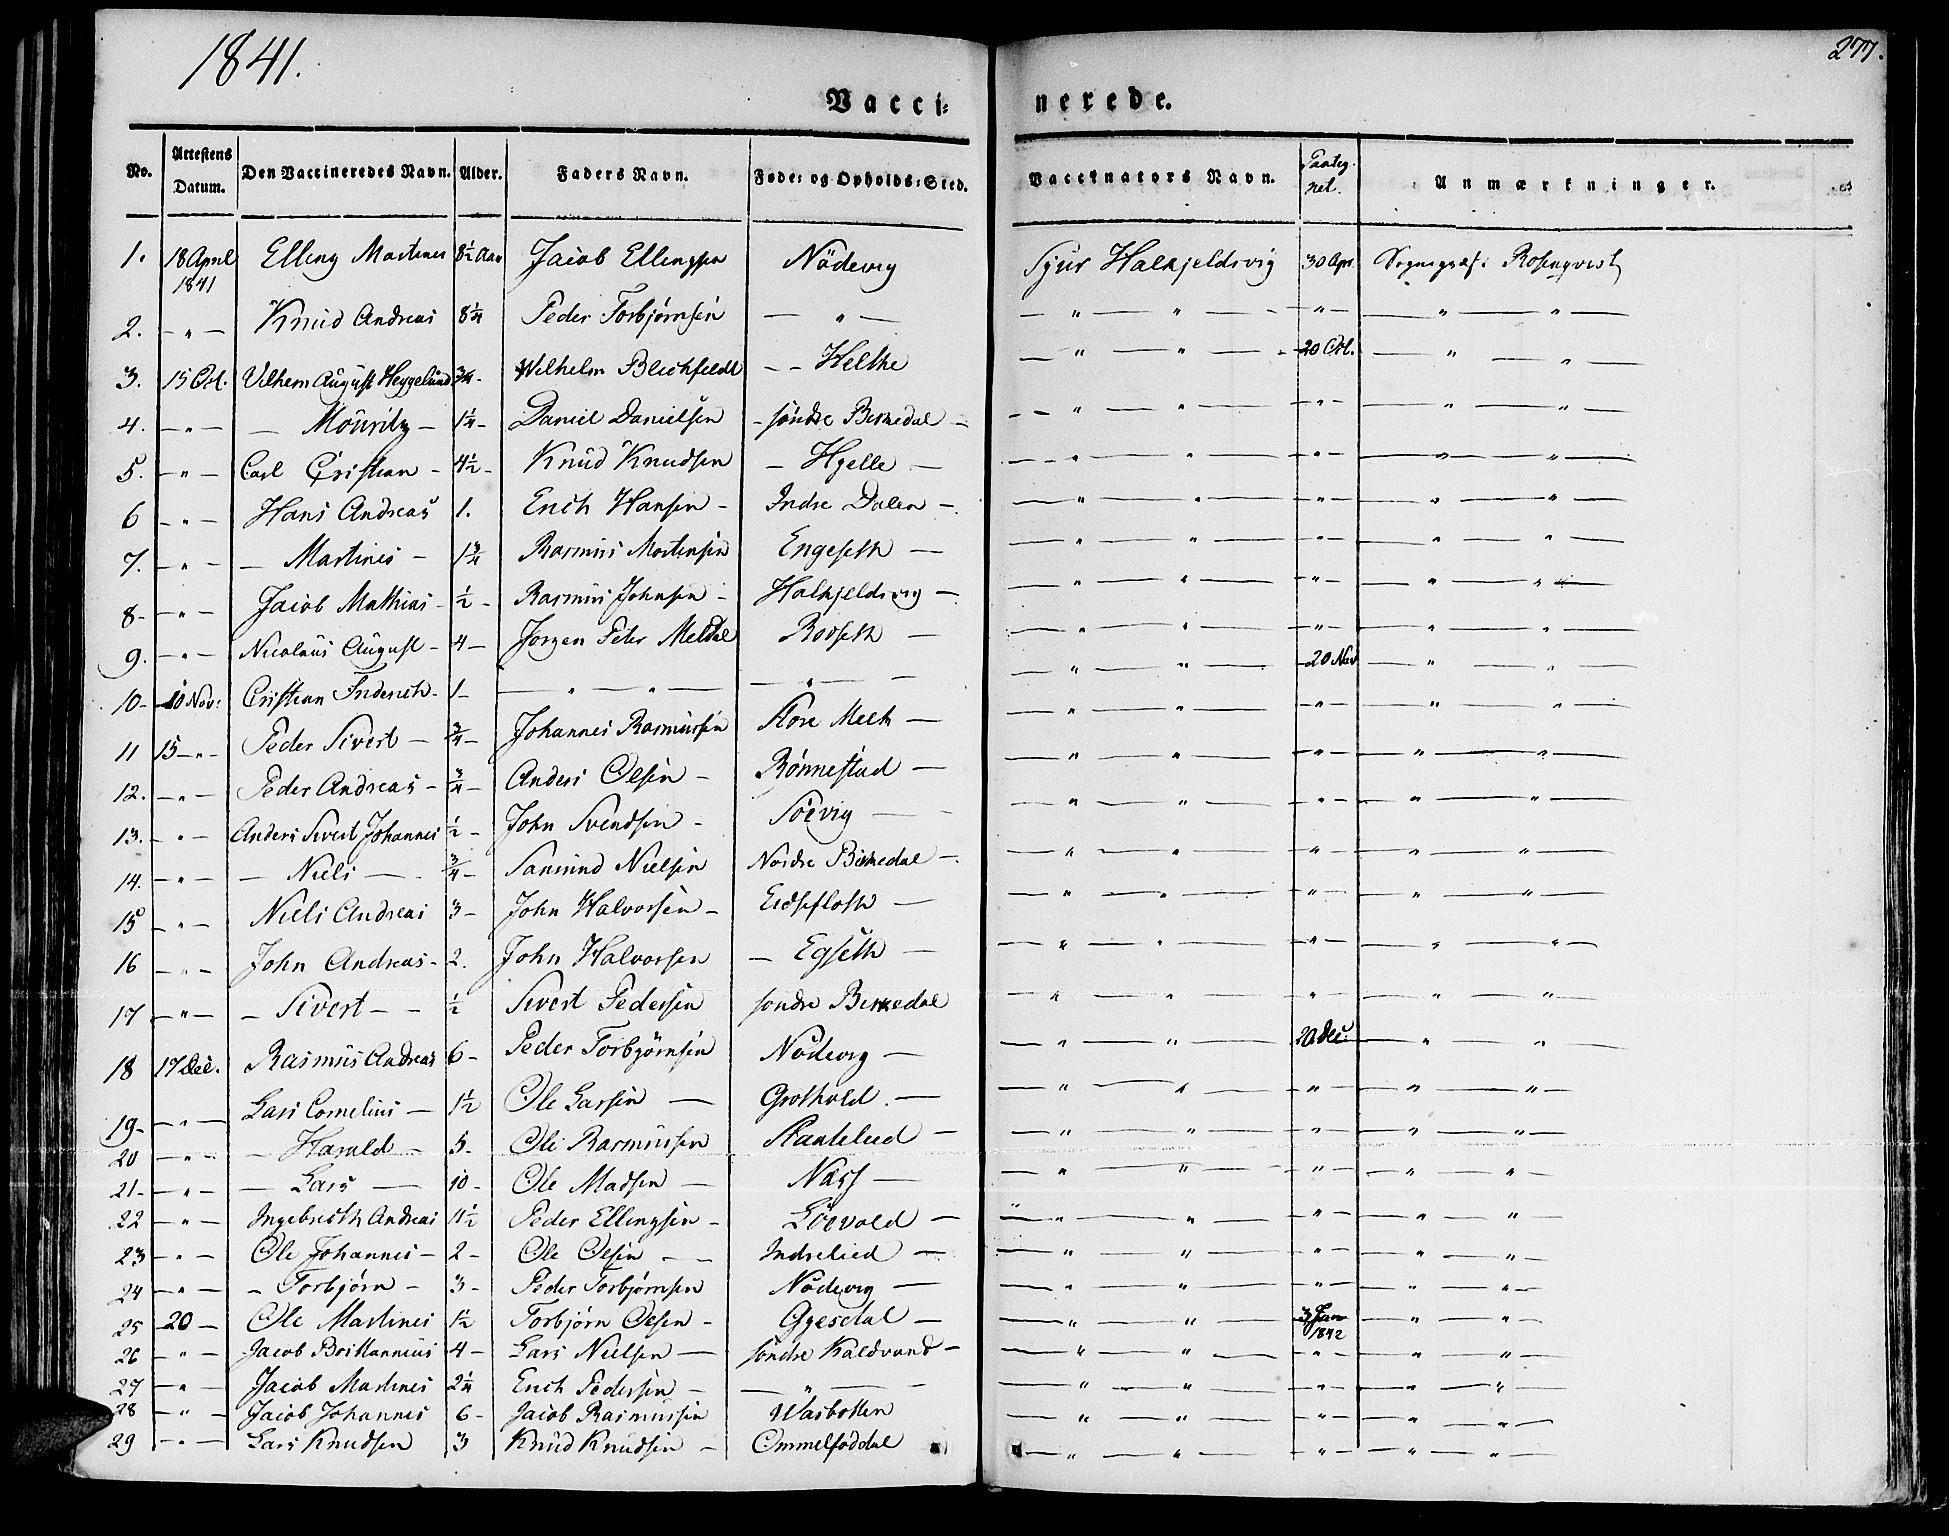 1841.
277.
Vacci= nerede.
No. Attestens Datum. Den Vaccineredes Navn. Alder. Faders Navn. Føde= og Opholds=Sted. Vaccinators Navn. Paateg net. Anmærkninger.
1. 18 April 1841 Elling Martinus 8½ Aar Jacob Ellingsen Nödevig Sjur Halkjeldsvig 30 Apr. Rosenqvist
2. - „ - Knud Andreas 8¼ Peder Torbjørnsen - „ - - „ - „ - - „ - - „ - „ -
3. 15 Oct. Vilhem August Heggelund ¾ - Wilhelm Blichfeldt - - Helthe - „ - „ - 20 Oct. - „ - „ -
4. - „ - - Mouritz - 1¼ - Daniel Danielsen - söndre Birkedal - - „ - „ - - „ - - „ - „ -
5. - „ - Carl Cristian - 4½ - Knud Knudsen - Hjelle - - „ - „ - - „ - - „ - „ -
6 - „ - Hans Andreas 1. Erich Hansen - Indre Dalen - - „ - „ - - „ - - „ - „ -
7. - „ - - Martines - 1¾ Rasmus Mortensen Engeseth - - „ - „ - - „ - - „ - „ -
8 - - „ - Jacob Mathias - ½ - Rasmus Johnsen - Halkjeldsvig - - „ - „ - - „ - - „ - „ -
9. - „ - Nicolaus August - 4 - Jørgen Peter Meldal Rodseth - - „ - „ - - „ - - „ - „ -
10 - 10 Nov: Cristian Frderich - 1 - - „ - „ - - „ - - „ - „ - 20 Nov - „ - „ -
11 15 - „ - Peder Sivert - ¾ - Johannes Rasmussen Store Mech - - „ - „ - - „ - - „ - „ -
12. - „ - Peder Andreas - ¾ - Anders Olsen - Rönnestad - - „ - „ - - „ - - „ - „ -
13. - „ - Anders Sivert Johannes ½ - John Svendsen - Söevig - - „ - „ - - „ - - „ - „ -
14. - „ - - Niels - ¾ - Samund Nielsen Nordre Birkedal - - „ - „ - - „ - - „ - „ -
15 - „ - Niels Andreas 3 - John Halvorsen - - - „ - „ - - „ - - „ - „ -
16 - „ - John Andreas - 2. John Halvorsen - Egseth - - „ - „ - - „ - - „ - „ -
17 - „ - - Sivert - - ½ Sivert Pedersen søndre Birkedal - „ - „ - „ - „ - „ -
18 17 Dec. Rasmus Andreas 6 - Peder Torbjörnsen Nödevig - - „ - „ - 20 Dec: - „ - „ -
19 - - „ - Lars Cornelius - 1½ Ole Larsen - Grothold. - - „ - „ - - „ - - „ - „ -
20 - „ - - Harald - 5 - Ole Rasmussen - - „ - „ - - „ - - „ - „ -
21 - - „ - - Lars - 10 - Ole Madsen - Näss - - „ - „ - - „ - - „ - „ -
22 - „ - Ingebricth Andreas 11½ Peder Ellingsen - Löevold - - „ - „ - - „ - - „ - „ -
23 - „ - Ole Johannes - 2 - Ole Olsen - - Indrelied - - „ - „ - - „ - - „ - „ -
24 - „ - - Torbjørn - 3 - Peder Torbjørnsen Nödevig - - „ - „ - - „ - - „ - „ -
25 20 - Ole Martines 1½ Torbjörn Olsen - Gjesdal - - „ - „ - 3 Jan 1842 - „ - „ -
26 - „ - Jacob 4 - Lars Nielsen - søndre Kaldvand - - „ - „ - - „ - - „ - „ -
27 - „ - Jacob Martines 2¼ Erich Pedersen - - „ - - „ - „ - - „ - - „ - „ -
28 - „ - Jacob Johannes 6 - Jacob Rasmussen Wasbotten - „ - „ - - „ - - „ - „ -
29 - „ - Lars Knudsen 3 Knud Knudsen - Ommelfoddal - „ - „ - - „ - - „ - „ -